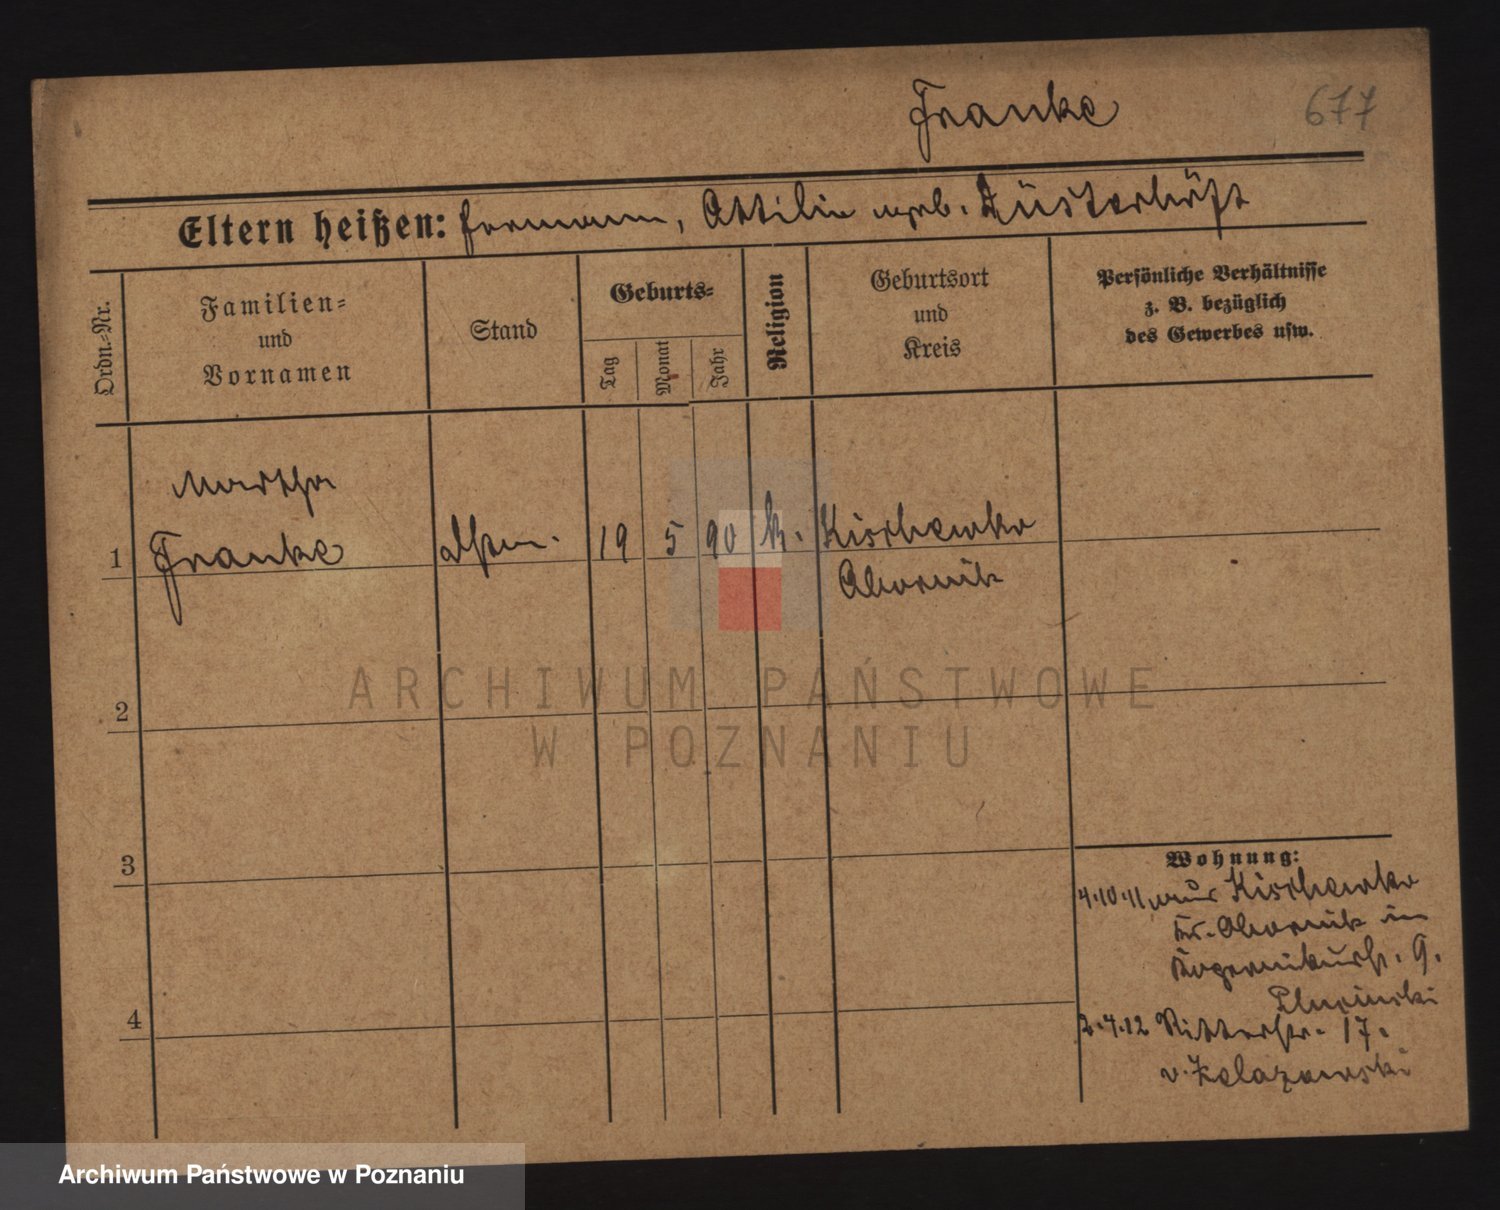 Franke
677
Eltern heißen: Hermann, Ottilie geb. Lüsterhöft
Ordn.-Nr.
Familien-
und
Vornamen
Stand
Geburts-
Tag
Monat
Jahr
Religion
Geburtsort
und
Kreis
Persönliche Verhältnisse
z. B. bezüglich
des Gewerbes usw.
Martha
1 Franke 19 5 90 k. Kischewko
Obornik
2
3
4
Wohnung:
4.10.11 aus Kischewko
Kr. Obornik in
9.
2.4.12 Ritterstr. 17.
ARCHIWUM PAŃSTWOWE
W POZNANIU
Archiwum Państwowe w Poznaniu